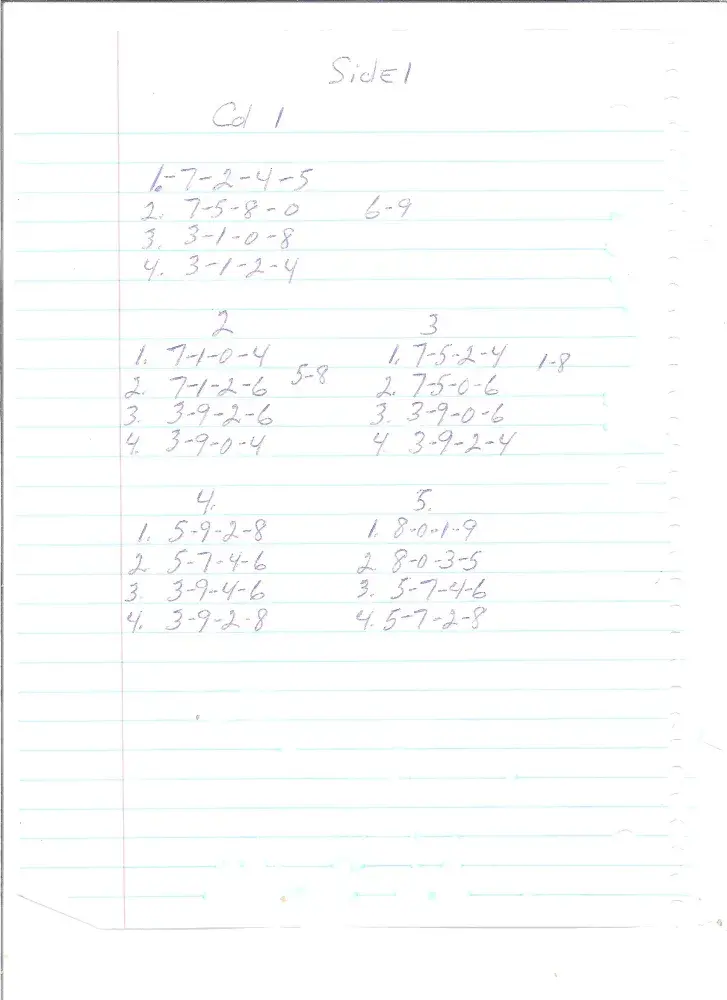 Side 1
Cd 1
1.-7-2-4-5
2. 7-5-8-0 6-9
3. 3-1-0-8
4. 3-1-2-4
2 3
1. 7-1-0-4 1. 7-5-2-4 1-8
2. 7-1-2-6 5-8 2. 7-5-0-6
3. 3-9-2-6 3. 3-9-0-6
4. 3-9-0-4 4. 3-9-2-4
4. 5.
1. 5-9-2-8 1. 8-0-1-9
2. 5-7-4-6 2. 8-0-3-5
3. 3-9-4-6 3. 5-7-4-6
4. 3-9-2-8 4. 5-7-2-8